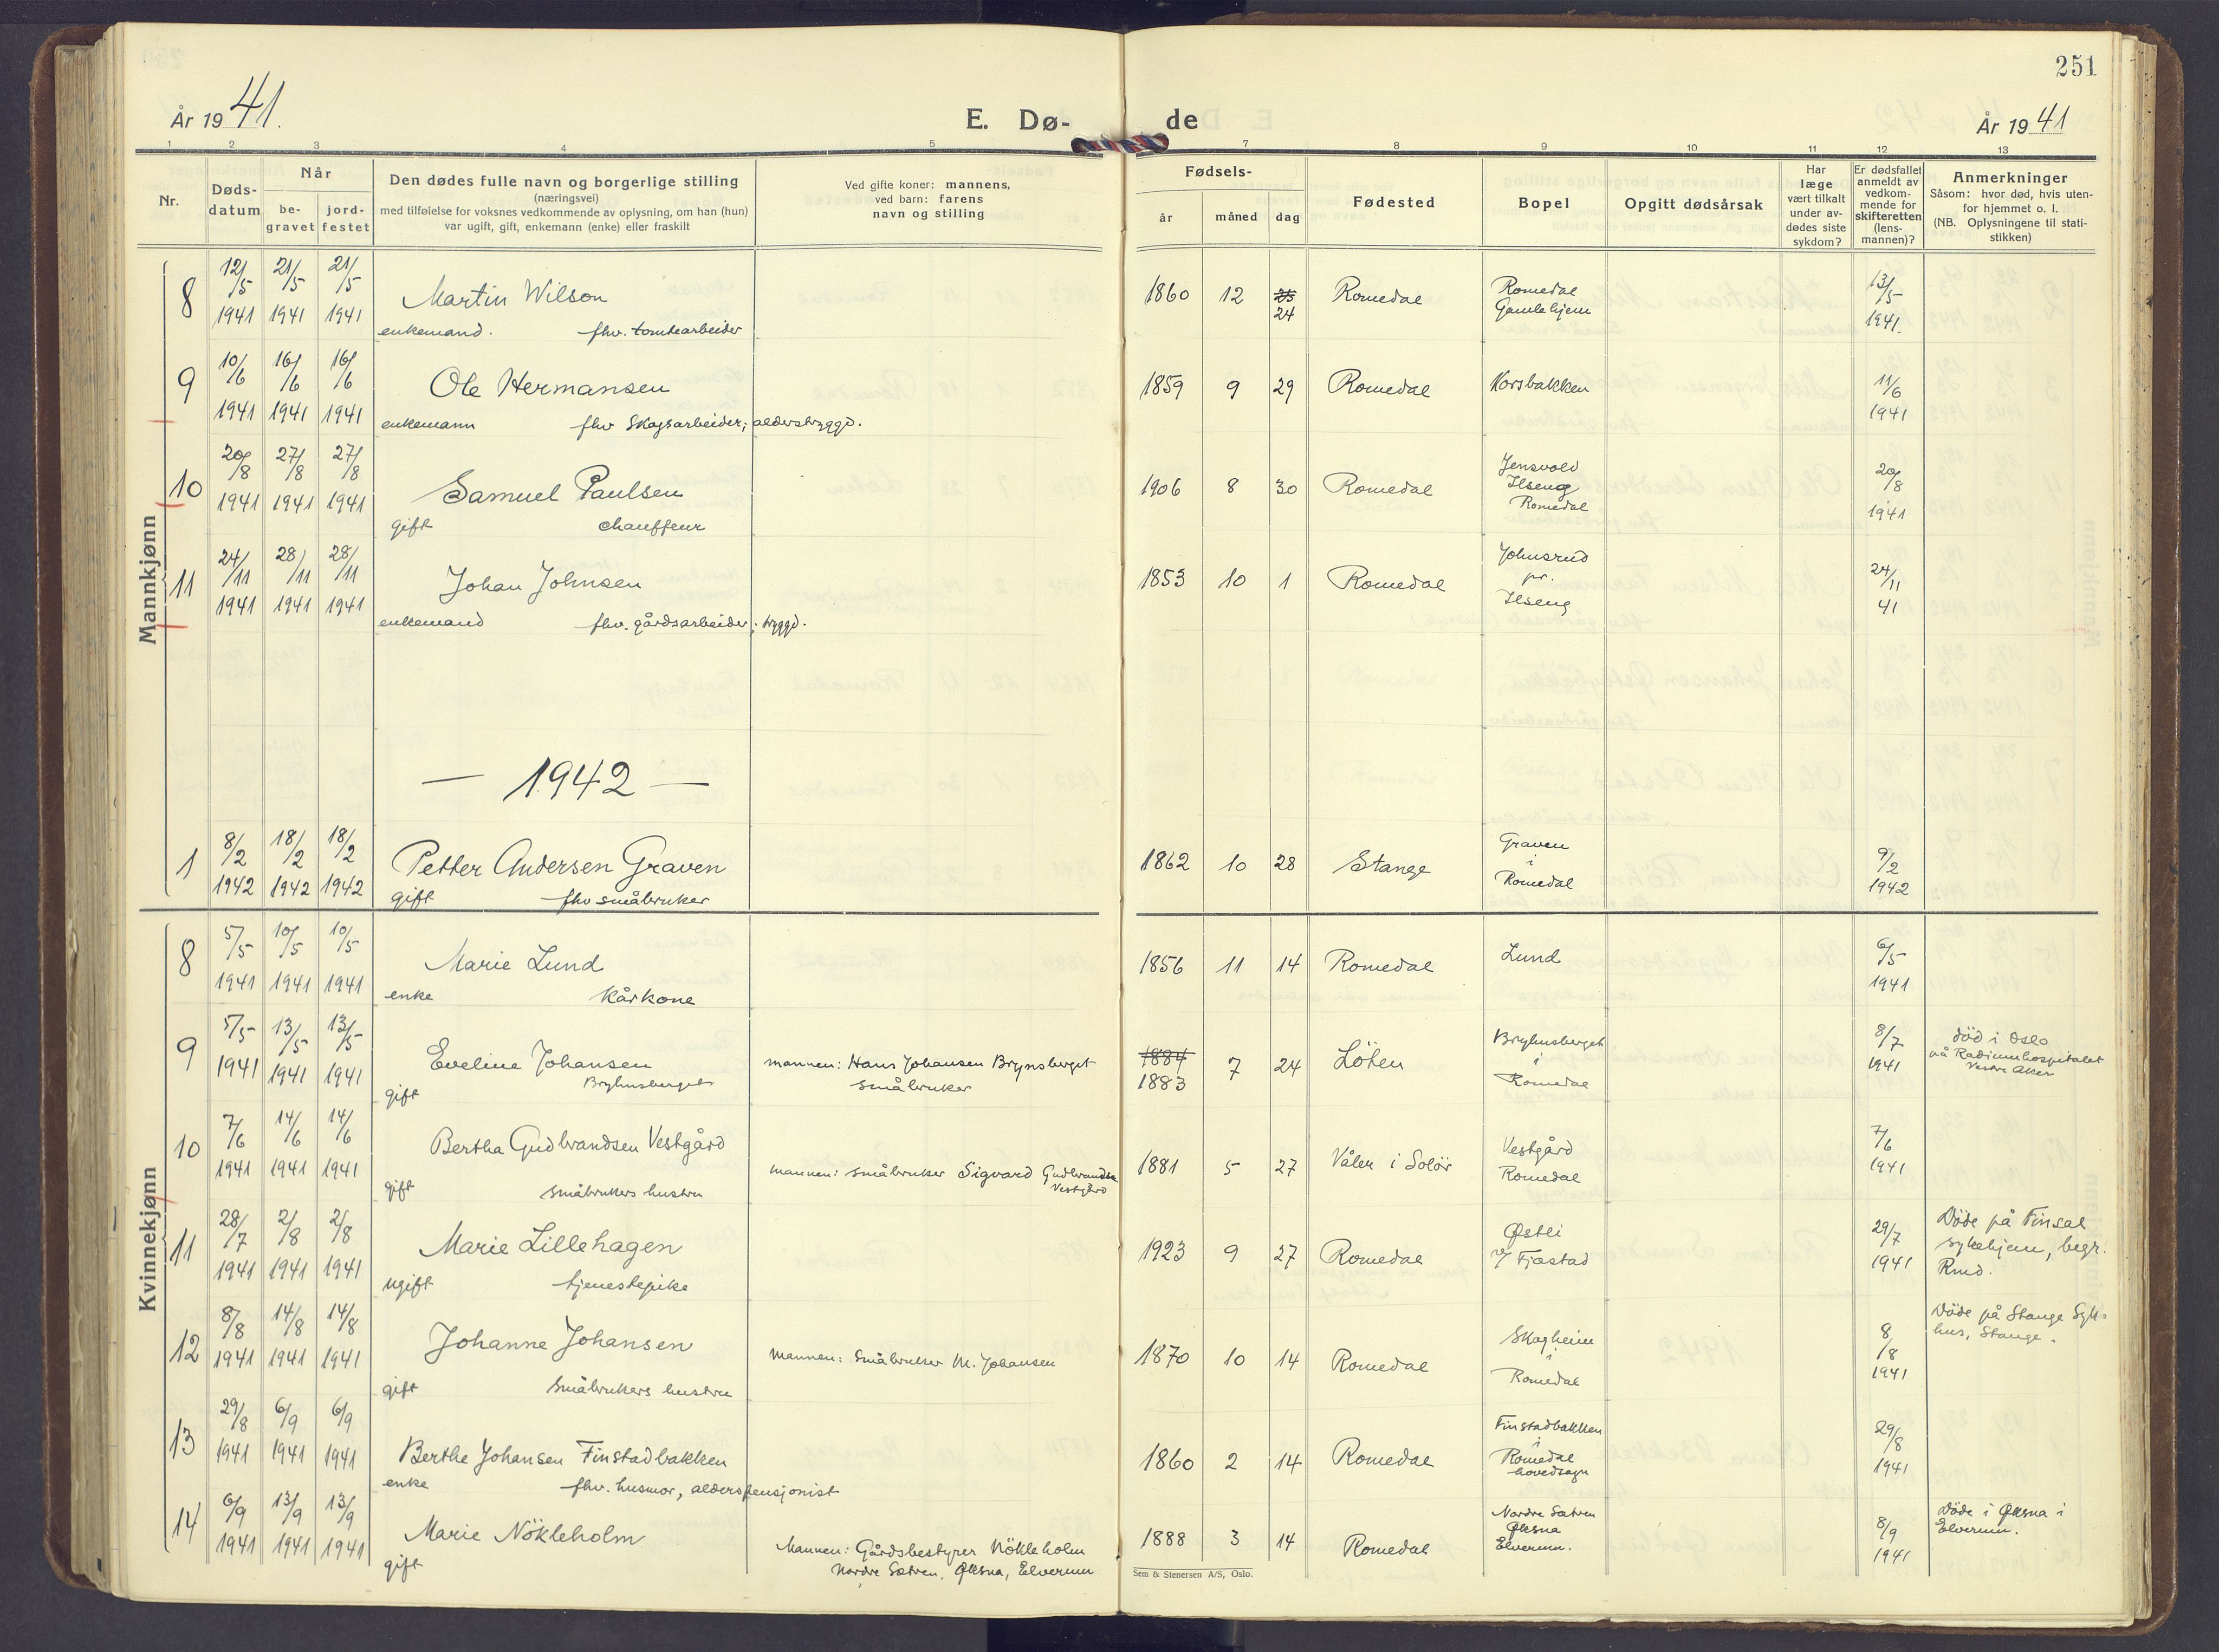 251
År 1941.
E. Dø-
de
År 1941
1 2 3 4 5 7 8 9 10 11 12 13
Nr.
Døds-
datum
Når
be-
gravet
jord-
festet
Den dødes fulle navn og borgerlige stilling
(næringsvei)
med tilføielse for voksnes vedkommende av oplysning, om han (hun)
var ugift, gift, enkemann (enke) eller fraskilt
Ved gifte koner: mannens,
ved barn: farens
navn og stilling
Fødsels-
år måned dag
Fødested
Bopel
Opgitt dødsårsak
Har
læge
vært tilkalt
under av-
dødes siste
sykdom?
Er dødsfallet
anmeldt av
vedkom-
mende for
skifteretten
(lens-
mannen)?
Anmerkninger
Såsom: hvor død, hvis uten-
for hjemmet o. l.
(NB. Oplysningene til stati-
stikken)
Mannkjønn
8 12/5 1941 21/5 1941 21/5 1941 Martin Wilson
enkemand. fhv. tomtearbeider
1860 12 25 24 Romedal
Romedal
Gamlehjem
13/5 1941.
9 10/6 1941 16/6 1941 16/6 1941 Ole Hermansen
enkemann fhv Skogsarbeider; alderstrygd.
1859 9 29 Romedal Korsbakken 11/6 1941
10 20/8 1941 27/8 1941 27/8 1941 Samuel Paulsen
gift chauffeur
1906 8 30 Romedal
Jensvold
Ilseng
Romedal
20/8 1941
11 24/11 1941 28/11 1941 28/11 1941 Johan Johnsen
enkemand fhv. gårdsarbeider; trygd.
1853 10 1 Romedal
Johnsrud
pr.
Ilseng
24/11 41
— 1942 —
1 8/2 1942 18/2 1942 18/2 1942 Petter Andersen Graven
gift fhv småbruker
1862 10 28 Stange
Graven
i
Romedal
9/2 1942
Kvinnekjønn
8 5/5 1941 10/5 1941 10/5 1941 Marie Lund
enke Kårkone
1856 11 14 Romedal Lund 6/5 1941
9 5/5 1941 13/5 1941 13/5 1941 Eveline Johansen
Bryhnsberget
gift
mannen: Hans Johansen Brynsberget
småbruker
1884 1883 7 24 Löten
Bryhnsberget
i
Romedal
8/7 1941
død i Oslo
på Radiumhospitalet
Vestre Aker
10 7/6 1941 14/6 1941 14/6 1941 Bertha Gudbrandsen Vestgård
gift småbrukers hustru
mannen: småbruker Sigvard Gudbrandsen
Vestgård
1881 5 27 Våler i Solör
Vestgård
Romedal
7/6 1941
11 28/7 1941 2/8 1941 2/8 1941 Marie Lillehagen
ugift tjenestepike
1923 9 27 Romedal
Østli
v/ Fjæstad
29/7 1941
Döde på Finsal
sykehjem, begr.
Rmd.
12 8/8 1941 14/8 1941 14/8 1941 Johanne Johansen
gift småbrukers hustru
Mannen: Småbruker M. Johansen
1870 10 14 Romedal
Skogheim
i
Romedal
8/8 1941
Döde på Stange Syk-
hus, Stange.
13 29/8 1941 6/9 1941 6/9 1941 Berthe Johansen Finstadbakken
enke fhv. husmor, alderspensjonist
1860 2 14 Romedal
Finstadbakken
i
Romedal
hovedsogn
29/8 1941
14 6/9 1941 13/9 1941 13/9 1941 Marie Nökleholm
gift
Mannen: Gårdsbestyrer Nökleholm
Nordre Sætren, Øksna, Elverum
1888 3 14 Romedal
Nordre Sætren
Øksna
Elverum.
8/9 1941
Döde i Øksna i
Elverum.
Sem & Stenersen A/S, Oslo.